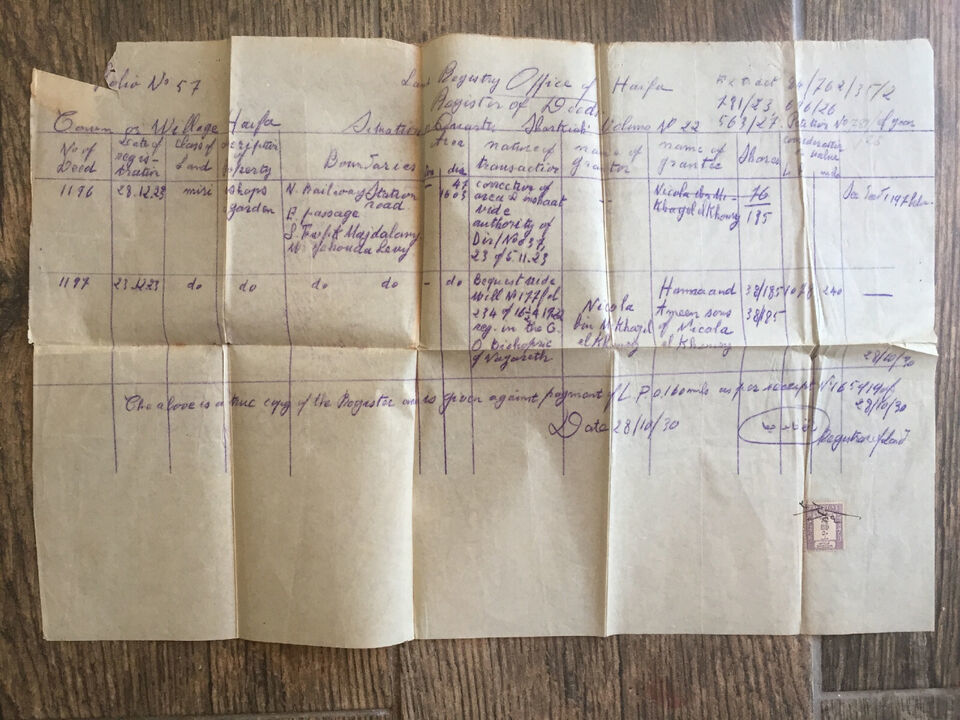 Folio No 57
Land Registry Office of Haifa
Register of Deeds
Extract 84/762/35/2
791/23 626/26
563/27 Petition No of year
Town or Village Haifa Situation Quarter Sharkieh Volume No 22
No of Deed
Date of registration
Class of Land
Description of property
Boundaries
Area
nature of transaction
name of grantor
name of grantee
Shares
Consideration or value
L P mils
1196 28.12.23 miri shops garden
N. Railway Station road
E passage
S Majdalany
W. Yehouda Levy
47
4603
correction of area & mshaat vide authority of Dis/No 637, 23 of 5.11.23
-
Nicola Khazel el Khoury
76
185
1197 23.12.23 do do do do - do
Bequest vide Will No 177 fol 234 of reg. in the G. O Bichopric of Nazareth
Nicola bin M Khazel el Khoury
Hanna and Ameen sons of Nicola el Khoury
38/185
38/85
1078 240 —
28/10/30
The above is a true copy of the Register and is given against payment of L.P 0.160 mils as per receipt No 165419 of
28/10/30
Date 28/10/30
Registrar of Land